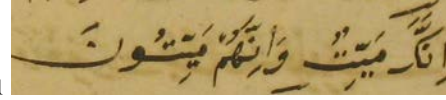 اِنَّكَ مَيِّتٌ وَاِنَّهُمْ مَيِّتُونَ